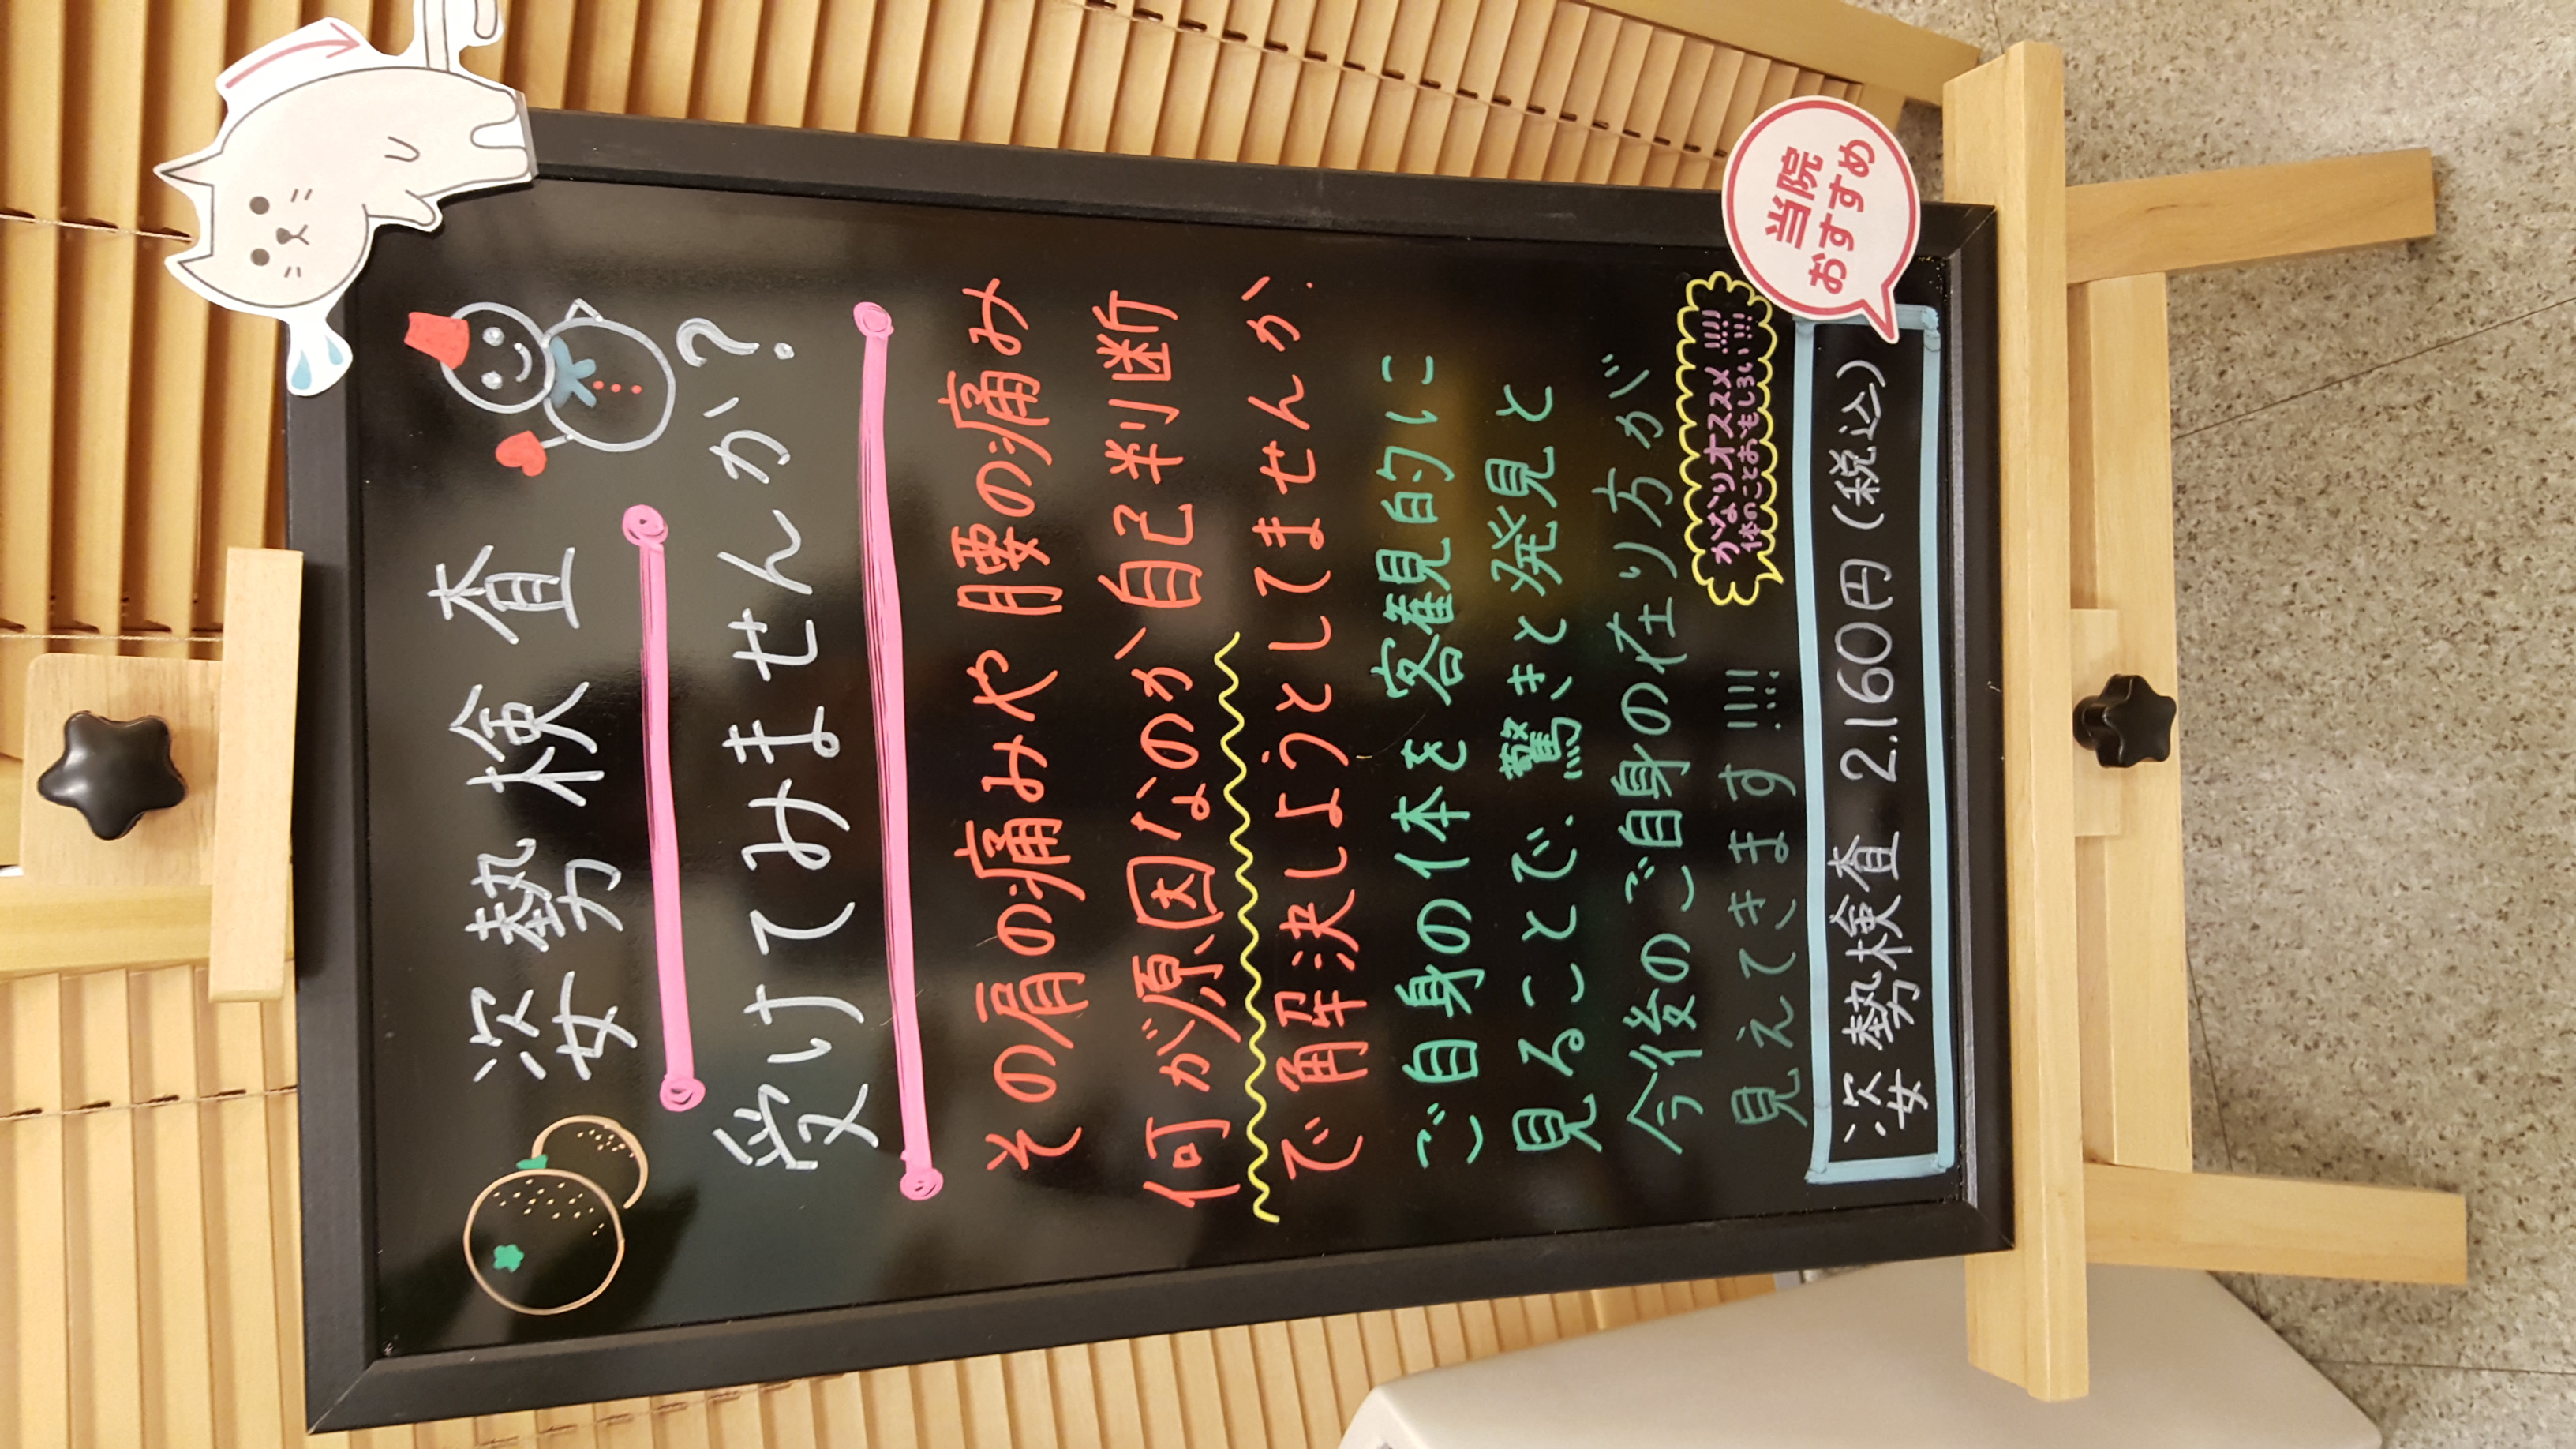 姿勢検査
受けてみませんか?
その肩の痛みや腰の痛み
何が原因なのか自己判断
で解決しようとしてませんか.
ご自身の体を客観的に
見ることで.驚きと発見と
今後のご自身の在り方が
見えてきます!!!!
かなりオススメ!!!!
体のことおもしろい!!!
当院
おすすめ
姿勢検査 2.160円(税込)